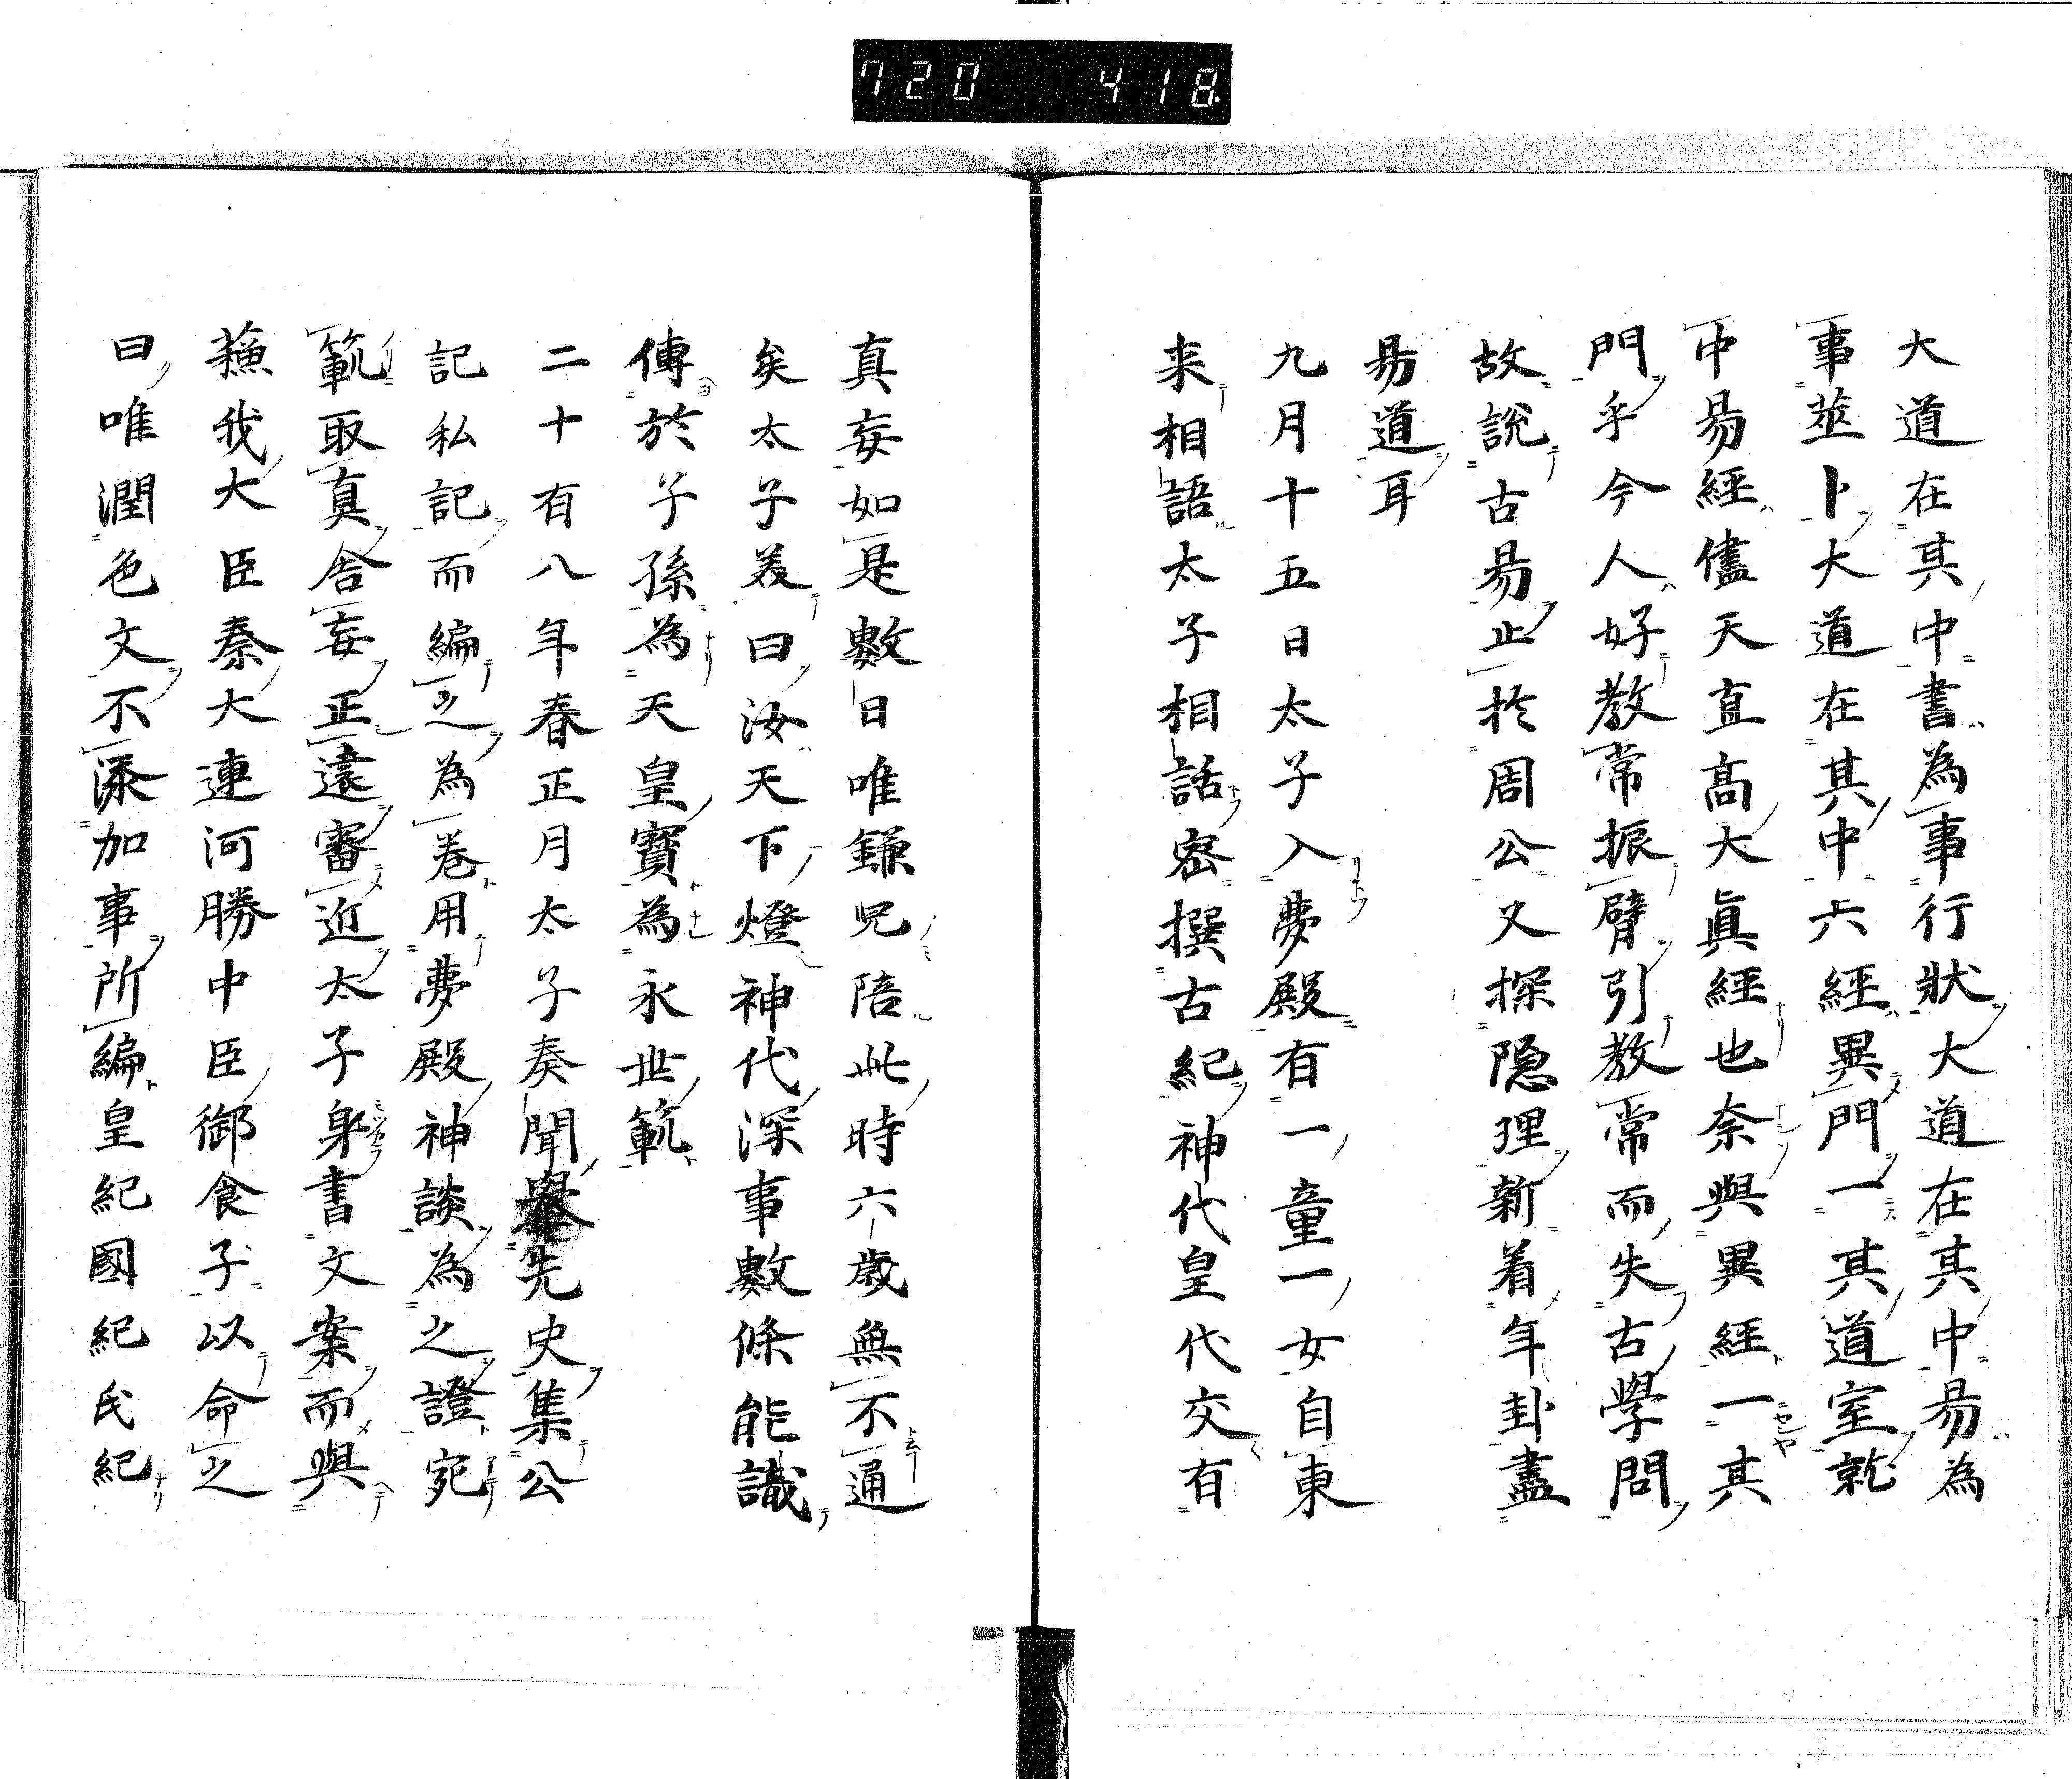 720 418.
大道在其中書為事行狀大道在其中易為
事莁卜大道在其中六經異門一其道室就
中易經儘天直高大眞經也奈與異經一其
門乎今人好教常振臂引教常而失古學問
故說古易止於周公又探隠理新着年卦盡
易道耳
九月十五日太子入夢殿有一童一女自東
来相語太子相話密撰古紀神代皇代交有
真妄如是數日唯鎌兒陪此時六歳無不通
矣太子羙曰汝天下燈神代深事數條能識
傳於子孫為天皇寶為永世範
二十有八年春正月太子奏聞舉先史集公
記私記而編之為卷用夢殿神談為之證宛
範取真舎妄正遠審近太子身書文案而與
蘓我大臣秦大連河勝中臣御食子以命之
曰唯潤色文不添加事所編皇紀國紀氏紀